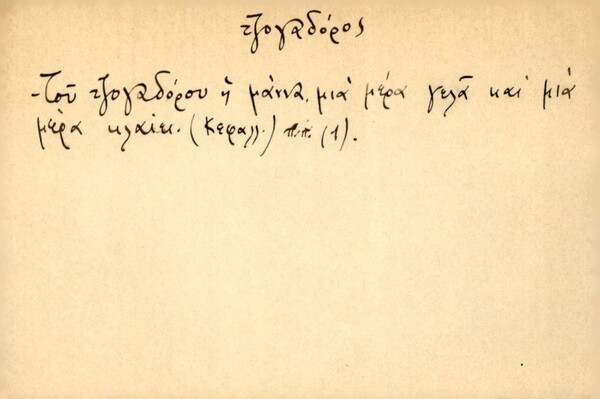 τζογαδόρος
-Τοῦ τζογαδόρου ἡ μάννα, μιὰ μέρα γελᾶ καὶ μιὰ
μέρα κλαίει. (Κεφαλλ.) π.π. (1).